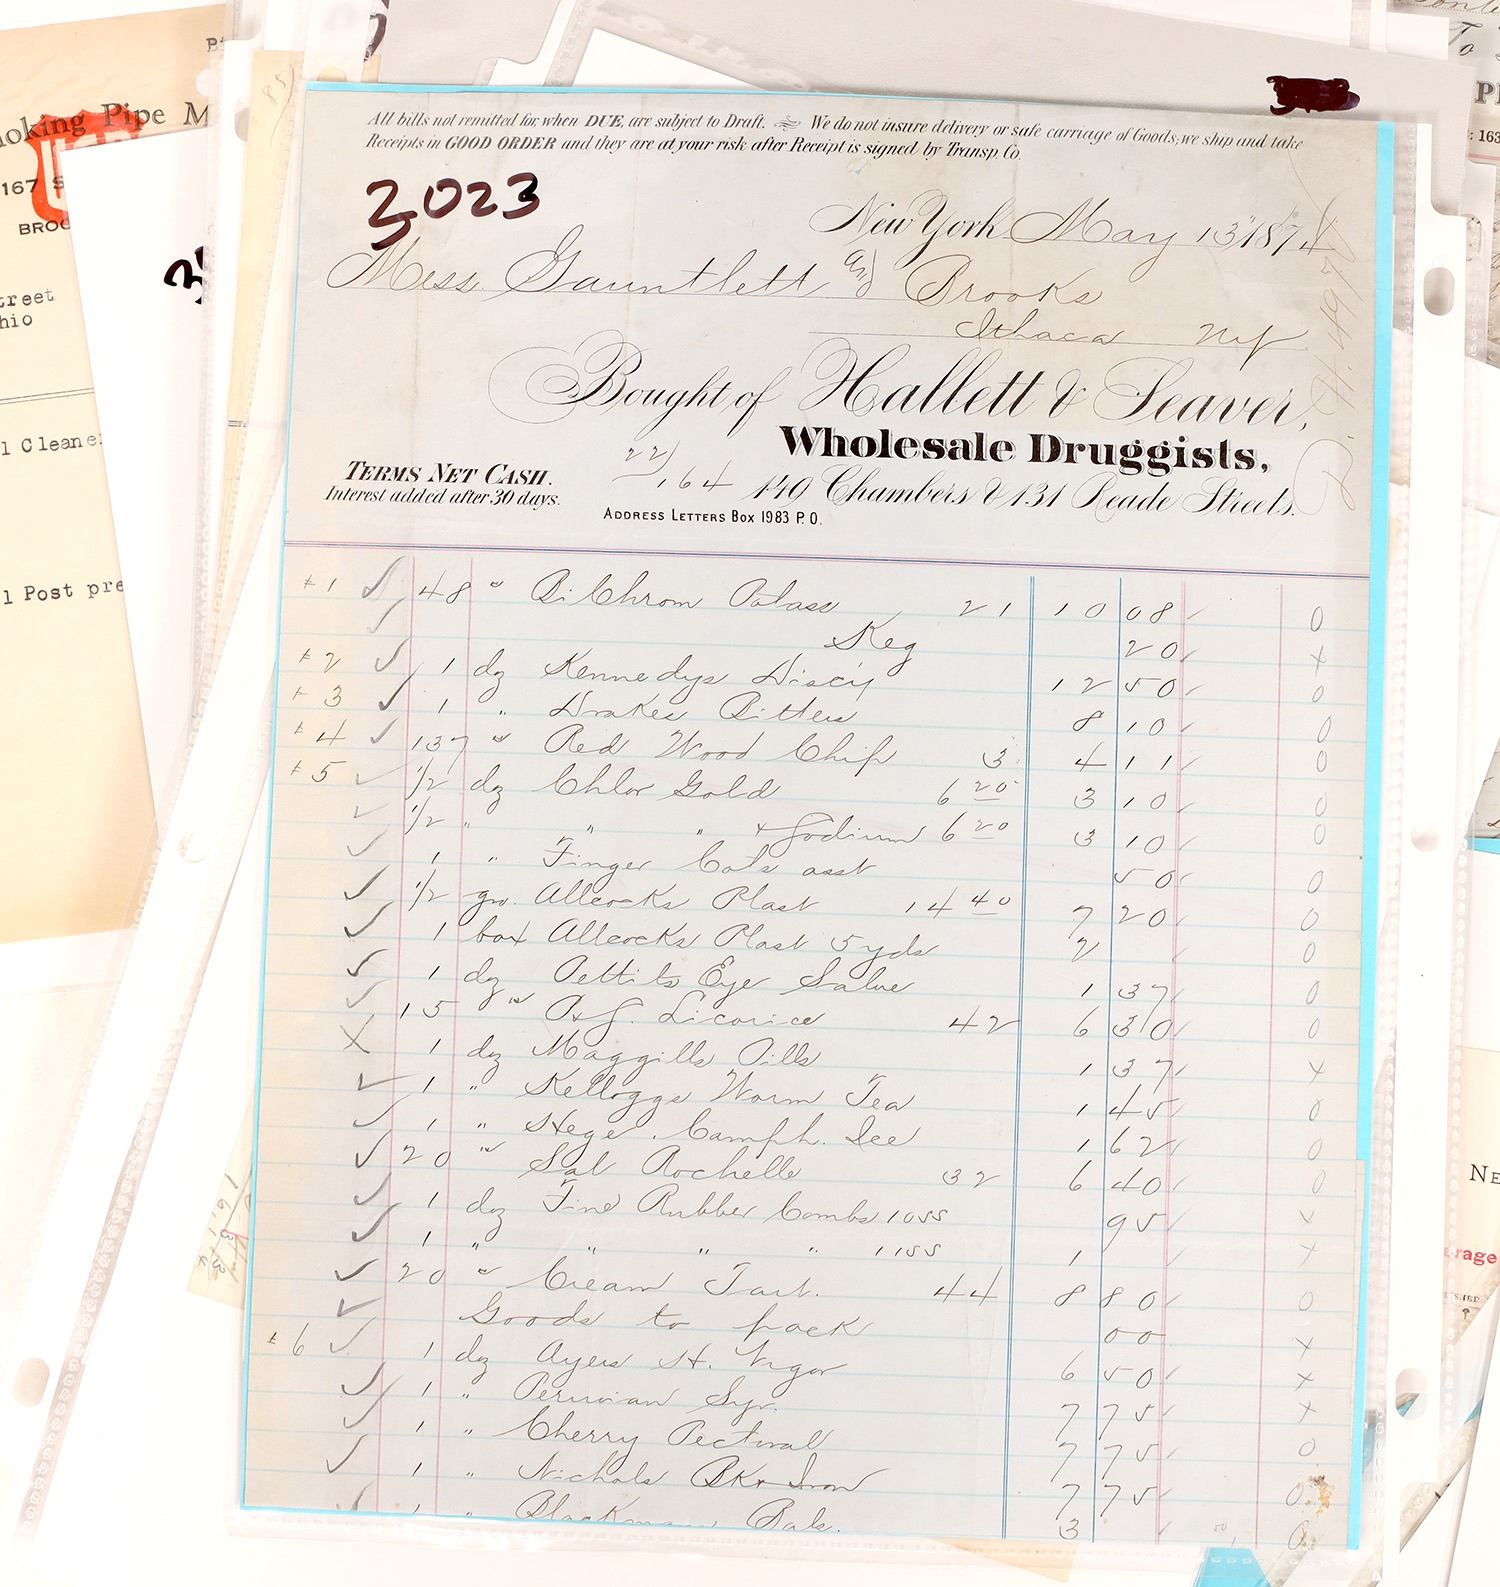 All bills not remitted for, when DUE, are subject to Draft. We do not insure delivery or safe carriage of Goods; we ship and take
Receipts in GOOD ORDER and they are at your risk after Receipt is signed by Transp. Co.
2023
New York May 13 1874
Mess. Gauntlett and Brooks
Ithaca NY
Bought of Hallett & Seaver,
Wholesale Druggists,
22/164
140 Chambers & 131 Reade Streets.
TERMS NET CASH.
Interest added after 30 days.
ADDRESS LETTERS BOX 1983 P.O.
#1 ✓ 48 " Bi Chrom Potass 21 10 08 0
✓ Keg 20 x
#2 ✓ 1 dz Kennedys Discy 12 50 0
#3 ✓ 1 " Drakes Bitters 8 10 0
#4 ✓ 137 " Red Wood Chip 3 4 11 0
#5 ✓ 1/2 dz Chlor Gold 6 20 3 10 0
✓ 1/2 " " " & Sodium 6 20 3 10 0
✓ 1 " Finger Cots asst 50 0
✓ 1/2 gro. Allcocks Plast 14 40 7 20 0
✓ 1 box Allcocks Plast 5 yds 2 0
✓ 1 dz Pettits Eye Salve 1 37 0
✓ 15 " P&S. Licorice 42 6 30 0
X 1 dz Maggills Pills 1 37 x
✓ 1 " Kelloggs Worm Tea 1 45 0
✓ 1 " Hege. Camph. Ice 1 62 0
✓ 20 " Sal Rochelle 32 6 40 0
✓ 1 dz Fine Rubber Combs 1055 95 x
✓ 1 " " " " 1155 1 x
✓ 20 " Cream Tart. 44 8 80 0
✓ Goods to pack 00 x
#6 ✓ 1 dz Ayers H. Vigor 6 50 x
✓ 1 " Peruvian Syr. 7 75 x
✓ 1 " Cherry Pectoral 7 75 0
✓ 1 " Nichols Bk & Iron 7 75 0
✓ 1 " Blackman Bals. 3 0
oking Pipe M
167 S
BROO
treet
hio
l Cleane
l Post pre
To
: 163
NE
rage